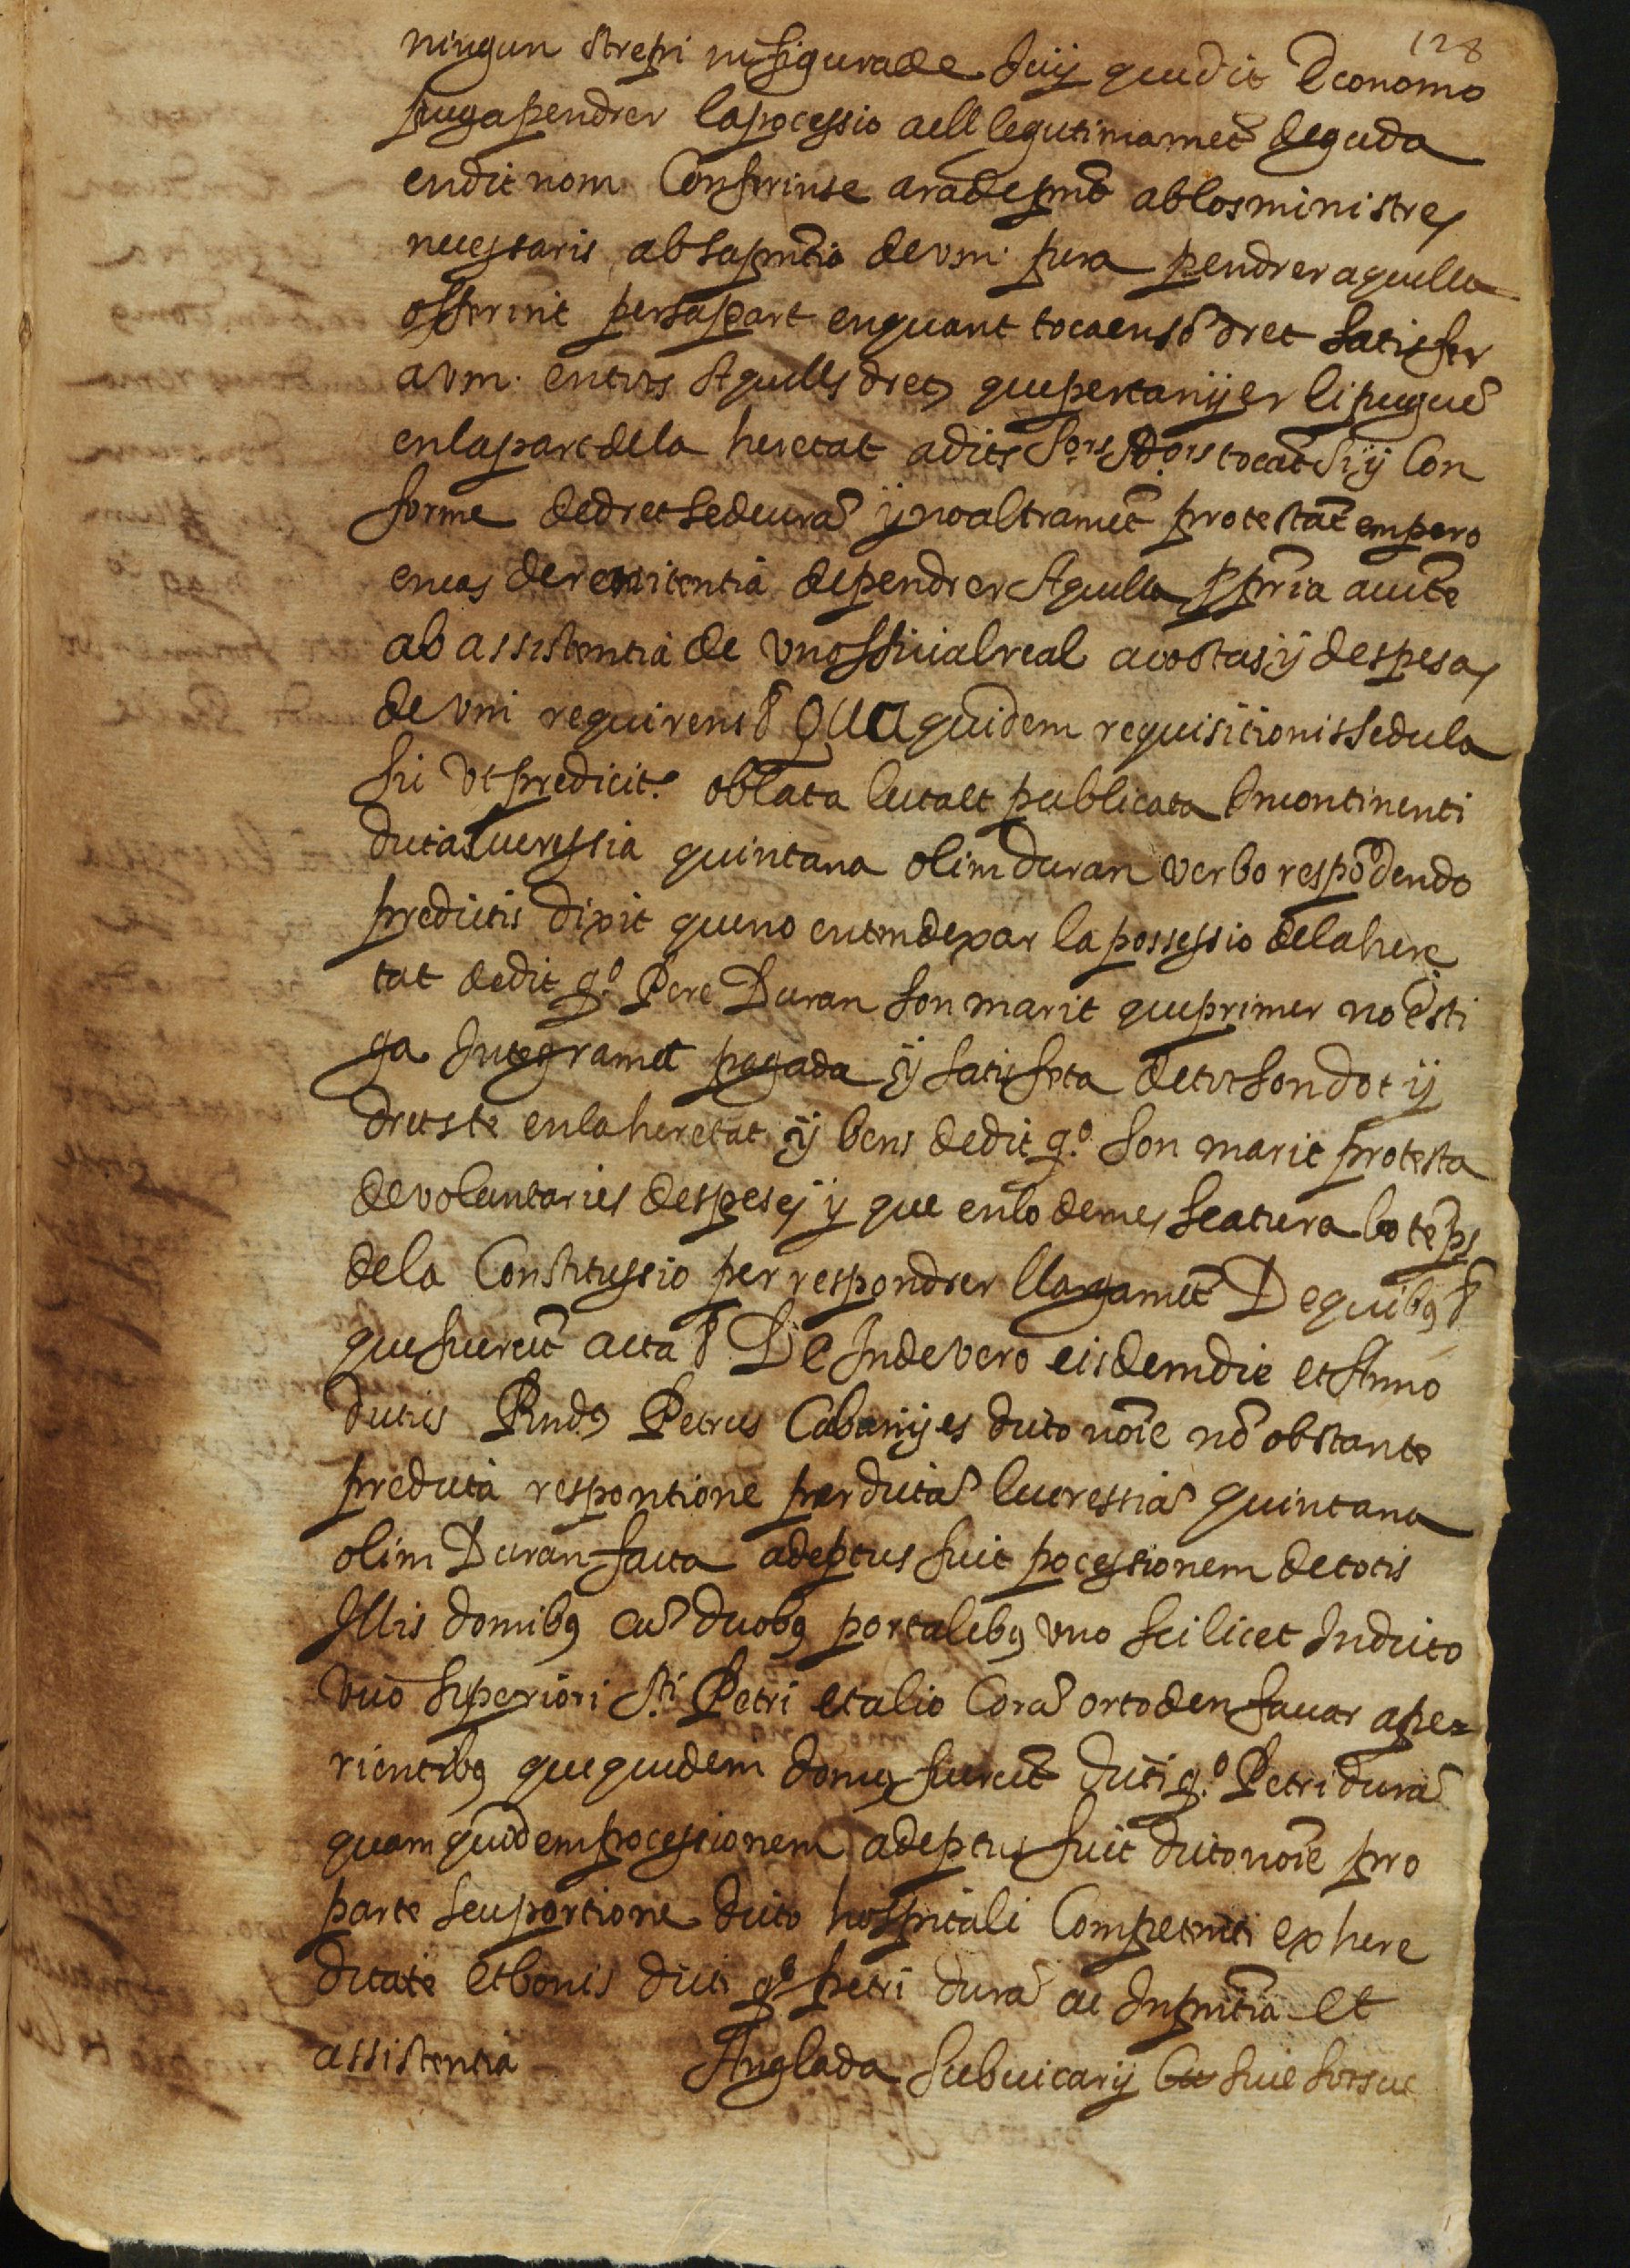 128
ningun strepi ni figura de Juy que dit Economo
puga pendrer la pocessio a ell legutimamēt deguda
en dit nom Conferinse ara de pnt ab los ministres
necessaris ab sa pntia de vm. pera pendrer aquella
offerint per sa part en quant toca en sō dret satisfer
a vm. en tots Aquells drets que pertanyer li puguē
en la part de la heretat a dits Sors Ad.ors tocāt si y Con
forme de dret se deurā y no altramēt protestāt empero
en cas de renitentia de pendrer Aquella
ab assistentia de un official real a costas y despesas
de vm requirens &ᵃ Qua quidem requisitionis sedula
sic ut predicit.ʳ oblata lecta et publicata Incontinenti
dicta Lucressia quintana olim duran verbo respōdendo
predictis dixit que no enten dexar la possessio de la here
tat de dit qº Pere Duran son marit que primer no esti
ga Integramēt pagada y satisfeta de tot son dot y
dret ste en la heretat y bens de dit qº son marit protesta
de voluntaries despeses y que en lo demes se atura lo tēps
de la Constitussio per respondrer llargamēt De quibꝰ &ᵃ
que fuerūt acta &ᵃ De Inde vero eisdem die et Anno
dictus Rndꝰ Petrus Cabanyes dicto noīe nō obstante
predicta respontione per dictā lucressiā quintana
olim Duran facta adeptus fuit pocessionem de totis
Illis domibꝰ cū duobꝰ portalibꝰ uno scilicet In dicto
vico superiori Sti Petri et alio Corā orto den favar ape=
rientibꝰ que quidem domus fuerūt dicti qº Petri durā
quam quidem pocessionem adeptus fuit dicto noīe pro
parte seu portione dicto hospitali Competenti ex here
ditate et bonis dicti qº petri durā ac In pntia et
assistentia Anglada subvicarij